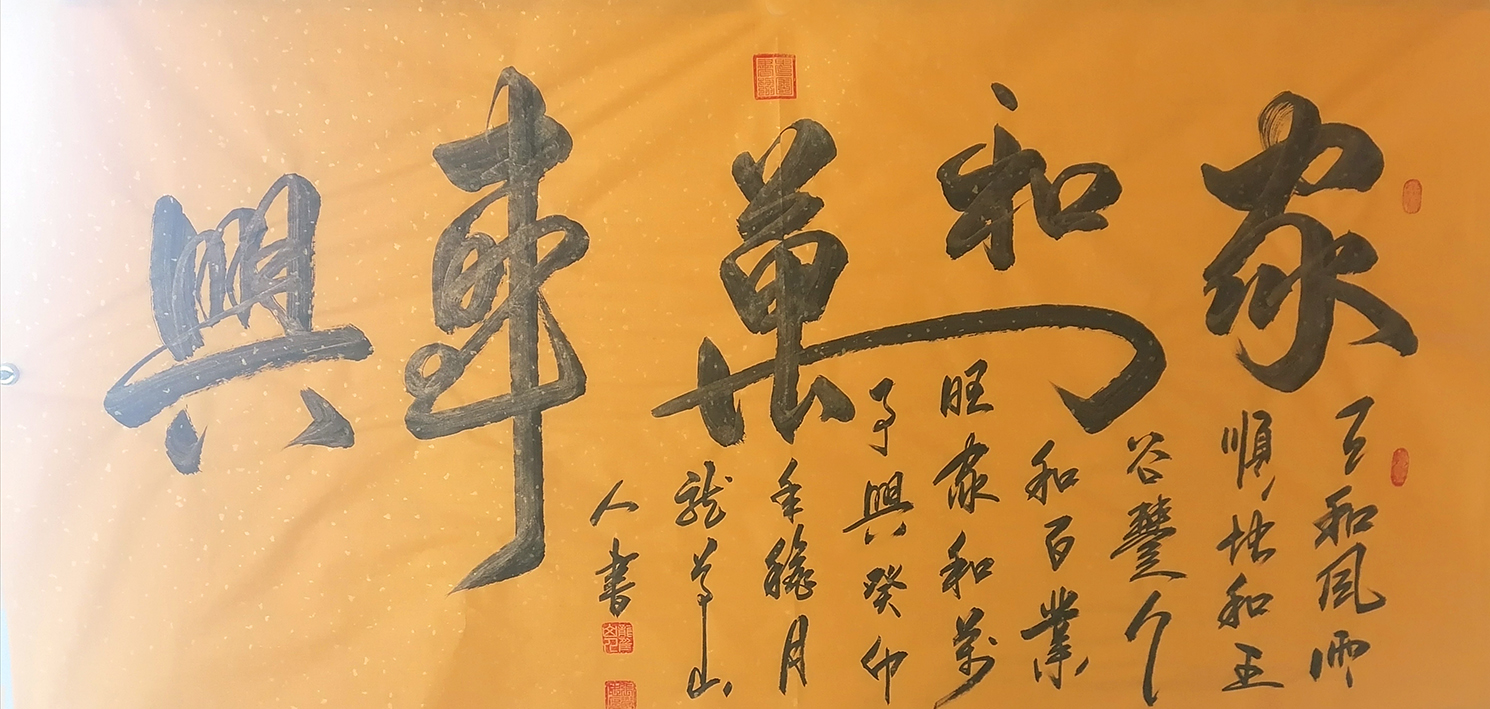 家和萬事興
天和風雨
順地和五
谷豐人
和百業
旺家和萬
事興癸卯
年月
龍山
人書